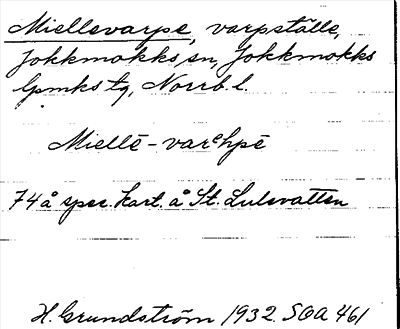 Miellevarpe, varpställe,
Jokkmokks sn, Jokkmokks
lpmks tg, Norrb. l.
Miellē-varᵉhpē
74 å spec. kart. å St. Lulevatten
H. Grundström 1932. SOA 461